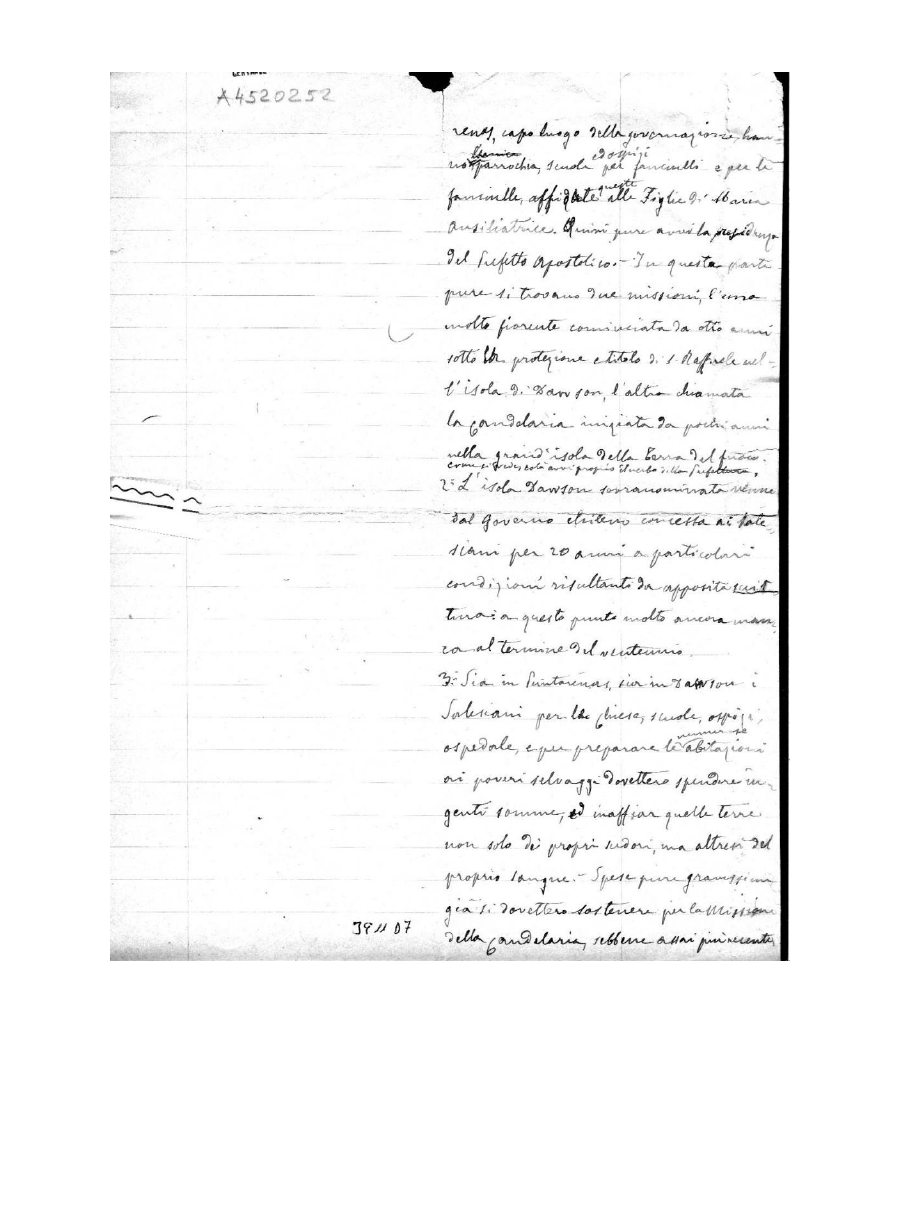 A4520252
renas, capo luogo della governazione, han-
no parrochia, scuole ed ospizi per fanciulli e per le
fanciulle, affidate queste alle Figlie di Maria
Ausiliatrice. Quivi pure avvi la residenza
del Prefetto Apostolico. - In questa parte
pure si trovano due missioni, l'una
molto fiorente cominciata da otto anni
sotto la protezione e titolo di S. Raffaele nel-
l'isola di Dawson, l'altra chiamata
la Candelaria iniziata da pochi anni
nella grand'isola della Terra del fuoco.
come si vede sta avvi proprio della Prefettura.
2º L'isola Dawson sovranominata venne
dal Governo chileno concessa ai Sale-
siani per 20 anni a particolari
condizioni risultanti da apposita scrit-
tura: a questo punto molto ancora man-
ca al termine del ventennio.
3º Sia in Puntarenas, sia in Dawson i
Salesiani per le Chiese, scuole, ospizi,
ospedale, e per preparare le abitazioni
ai poveri selvaggi dovettero spendere in-
genti somme, ed inaffiar quelle terre
non solo dei propri sudori, ma altresì del
proprio sangue. - Spese pure gravissime
già si dovettero sostenere per la Missione
della Candelaria, sebbene assai più recente,